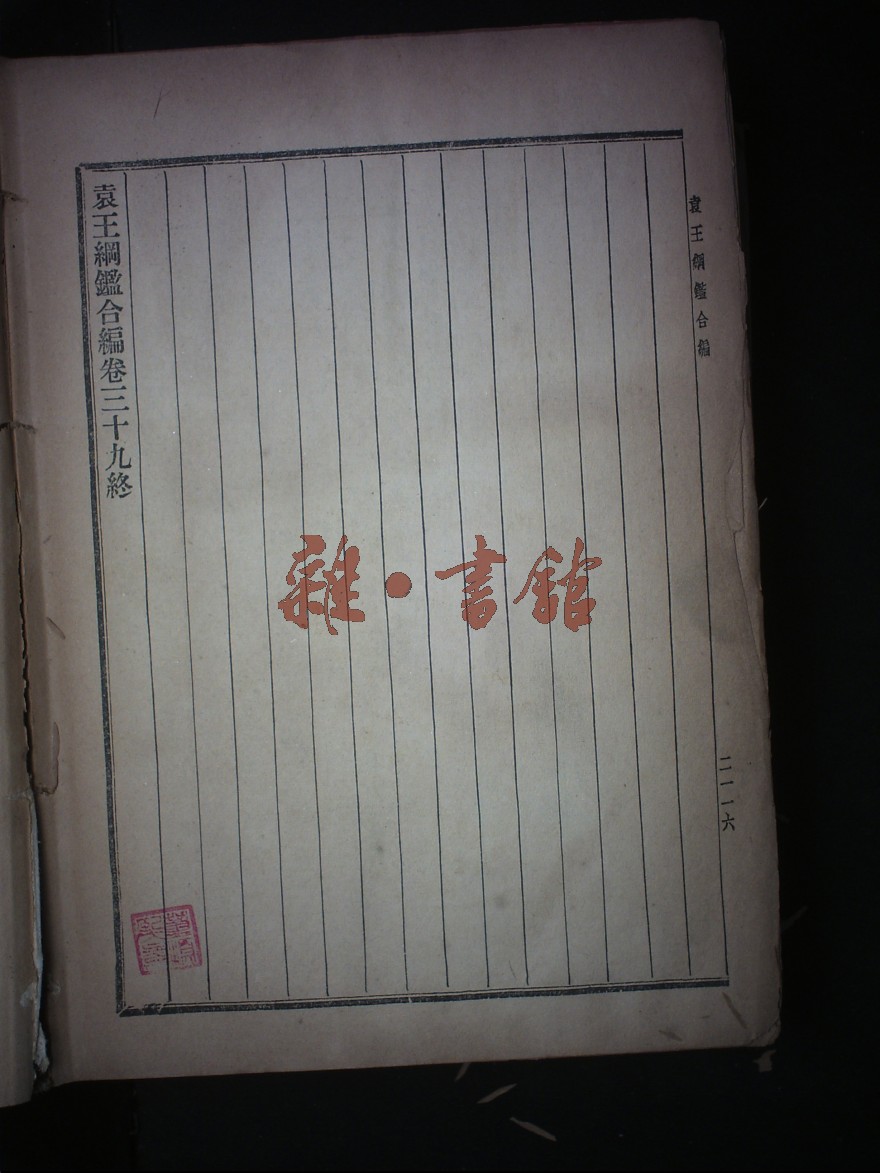 袁王綱鑑合編
二一一六
袁王綱鑑合編卷三十九終
雜·書館